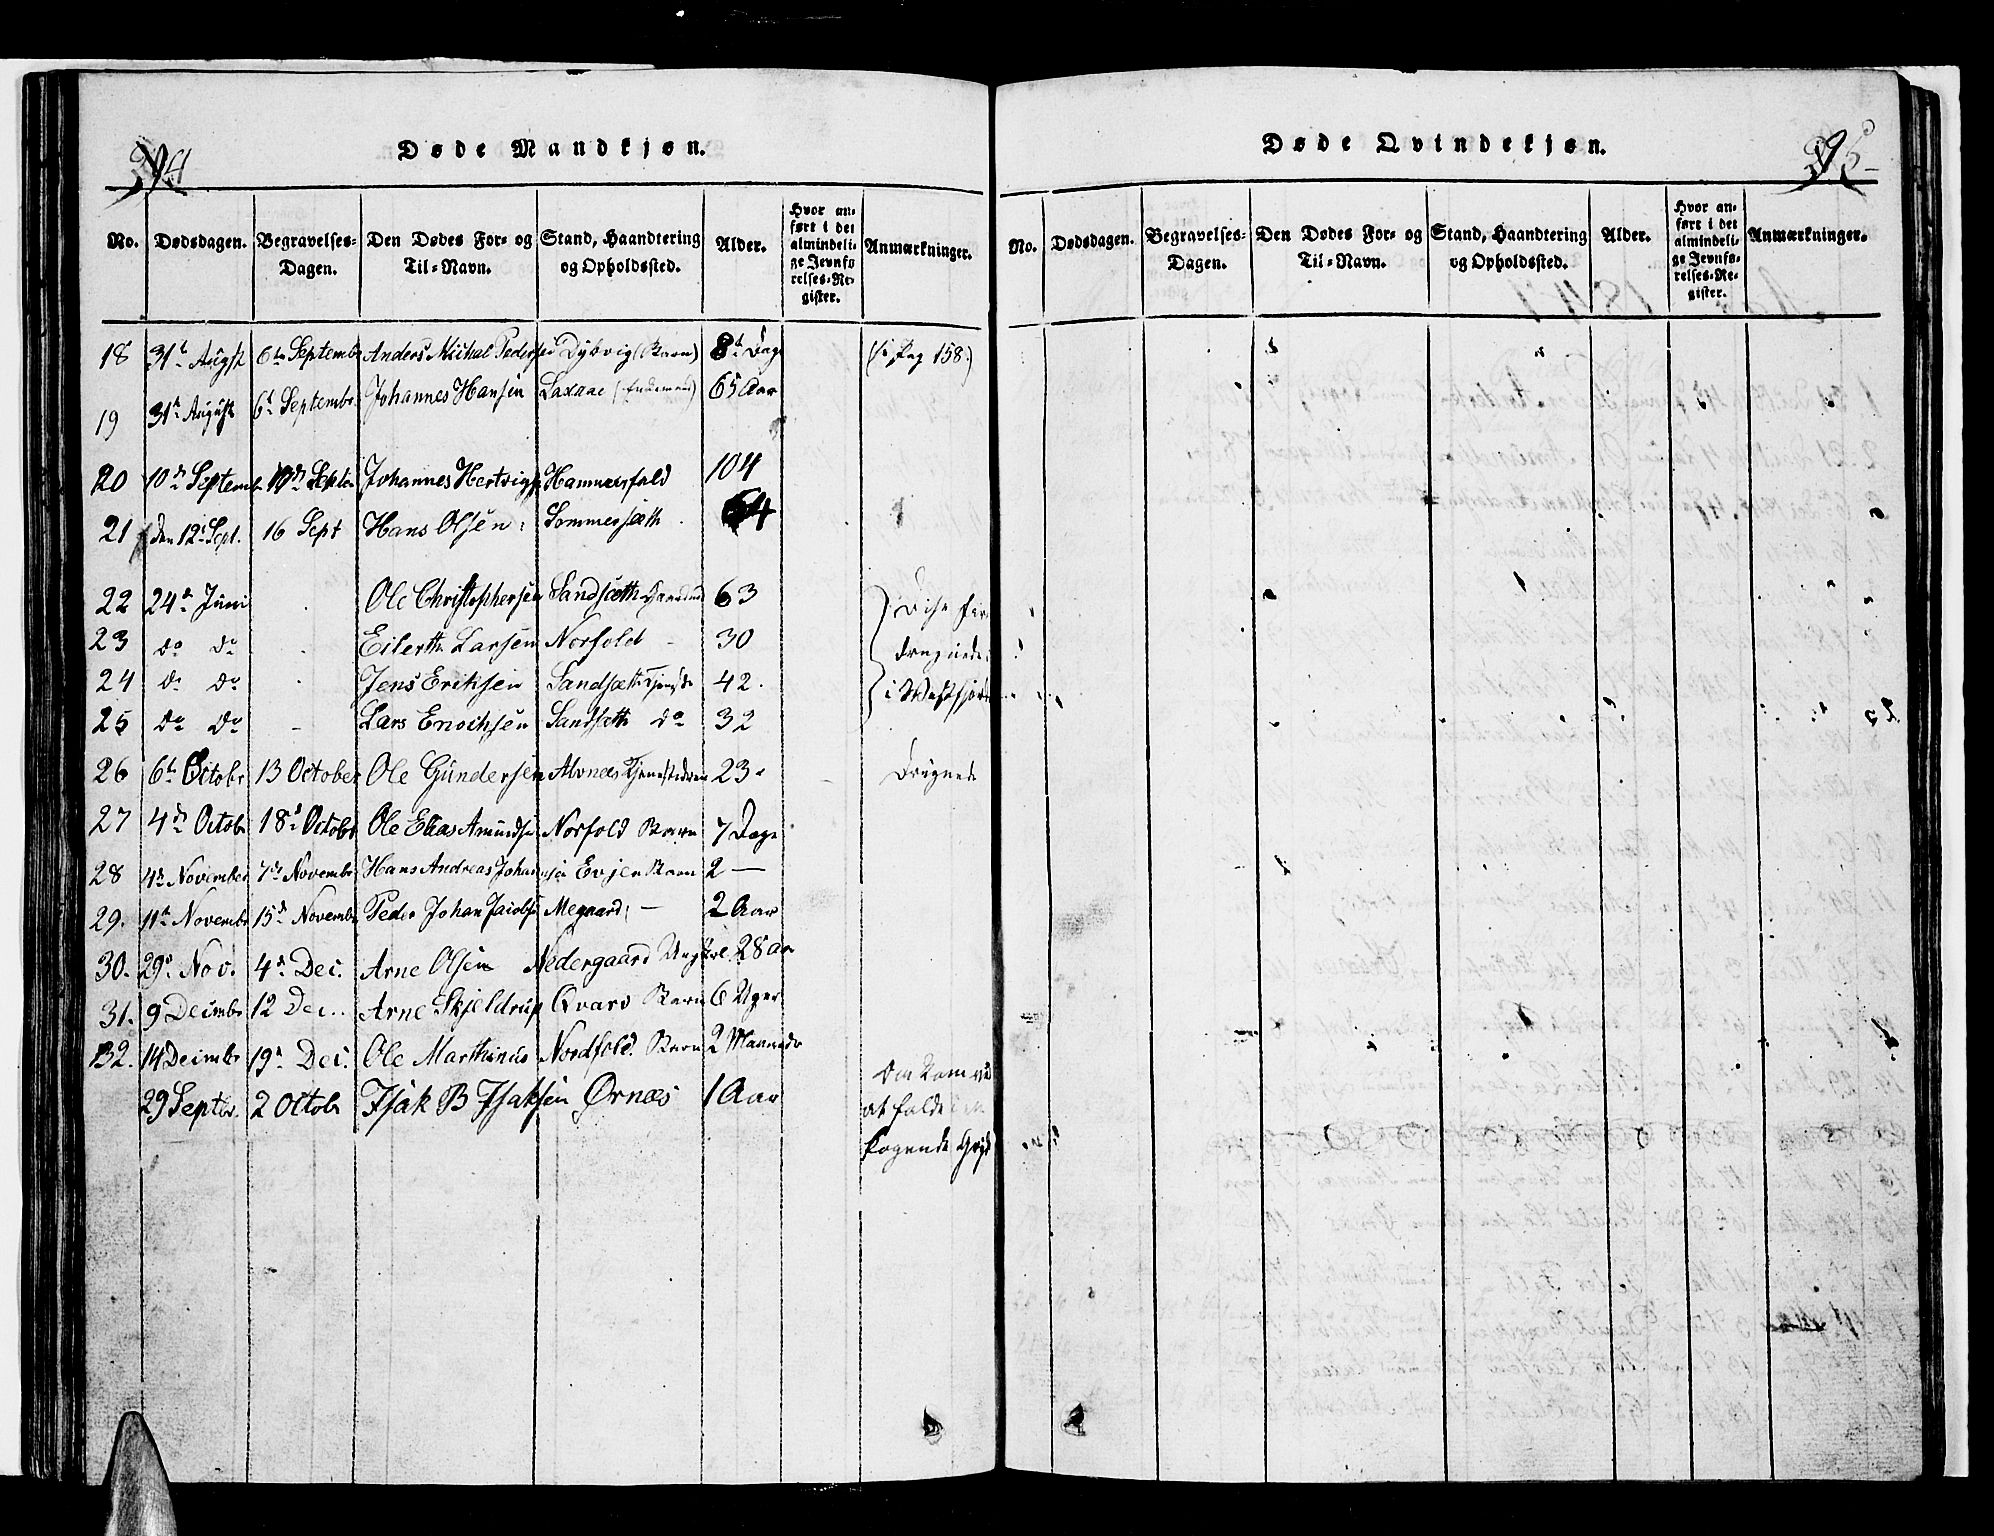 Døde Mandkjøn.
No. Dødsdagen. Begravelses-Dagen. Den Dødes For- og Til-Navn. Stand, Haandtering og Opholdssted. Alder. Hvor anført i det almindelige Jevnførelses-Register. Anmærkninger.
18 31te Augst 6te Septembr Anders Michal Pedersen Dybvig (Barn) 8te Dage (s: Pag 158.)
19 31te August 6te Septembr. Johannes Hansen Laxaae 65 Aar
20 10de Septemb. Septbr Johannes Hertvigs Hammersfald 104
21 Den 12te Sept. 16 Sept Hans Olsen Sommersæth. 64
22 24de Juni Ole Christophersen Sandsæth 63 Disse
23 do do Eilerth Larsen Norfold - 30 druknede
24 do do Jens Eriksen Sandsæth 42. i Westfjord
25 do do - Lars Enochsen Sandsæth do 32
26 6te Octobr 13 October Ole Gundersen Alvnæs 23 Druknede
27 4de Octob 18de Octobr Ole Elias Amundsen Norfold Barn 7 Dage
28 4de November 7de Novembr Hans Andreas Johannsen Evjen Barn 2 —
29. 11te Novembr 15de Novembr Peder Johan Jacobsen Megaard — 2 Aar
30. 29de Nov. 4de Dec. Arne Olsen Nedergaard Ungkarl. 28 aar
31. 9 Decembr 12 Dec.. Arne Skjeldrup Qvarv Barn 6 Uger
32. 14 Decembr 19de Dec. Ole Marthinus Nordfold. Barn 2 Maaneder
29 Septbr. 2 Octobr Isak B Isaksen Ørnæs 1 Aar
at falde
kogende
Døde Qvindekjøn.
95
No. Dødsdagen. Begravelses-Dagen. Den Dødes For- og Til-Navn. Stand, Haandtering og Opholdssted. Alder. Hvor anført i det almindelige Jevnførelses-Register. Anmærkninger.